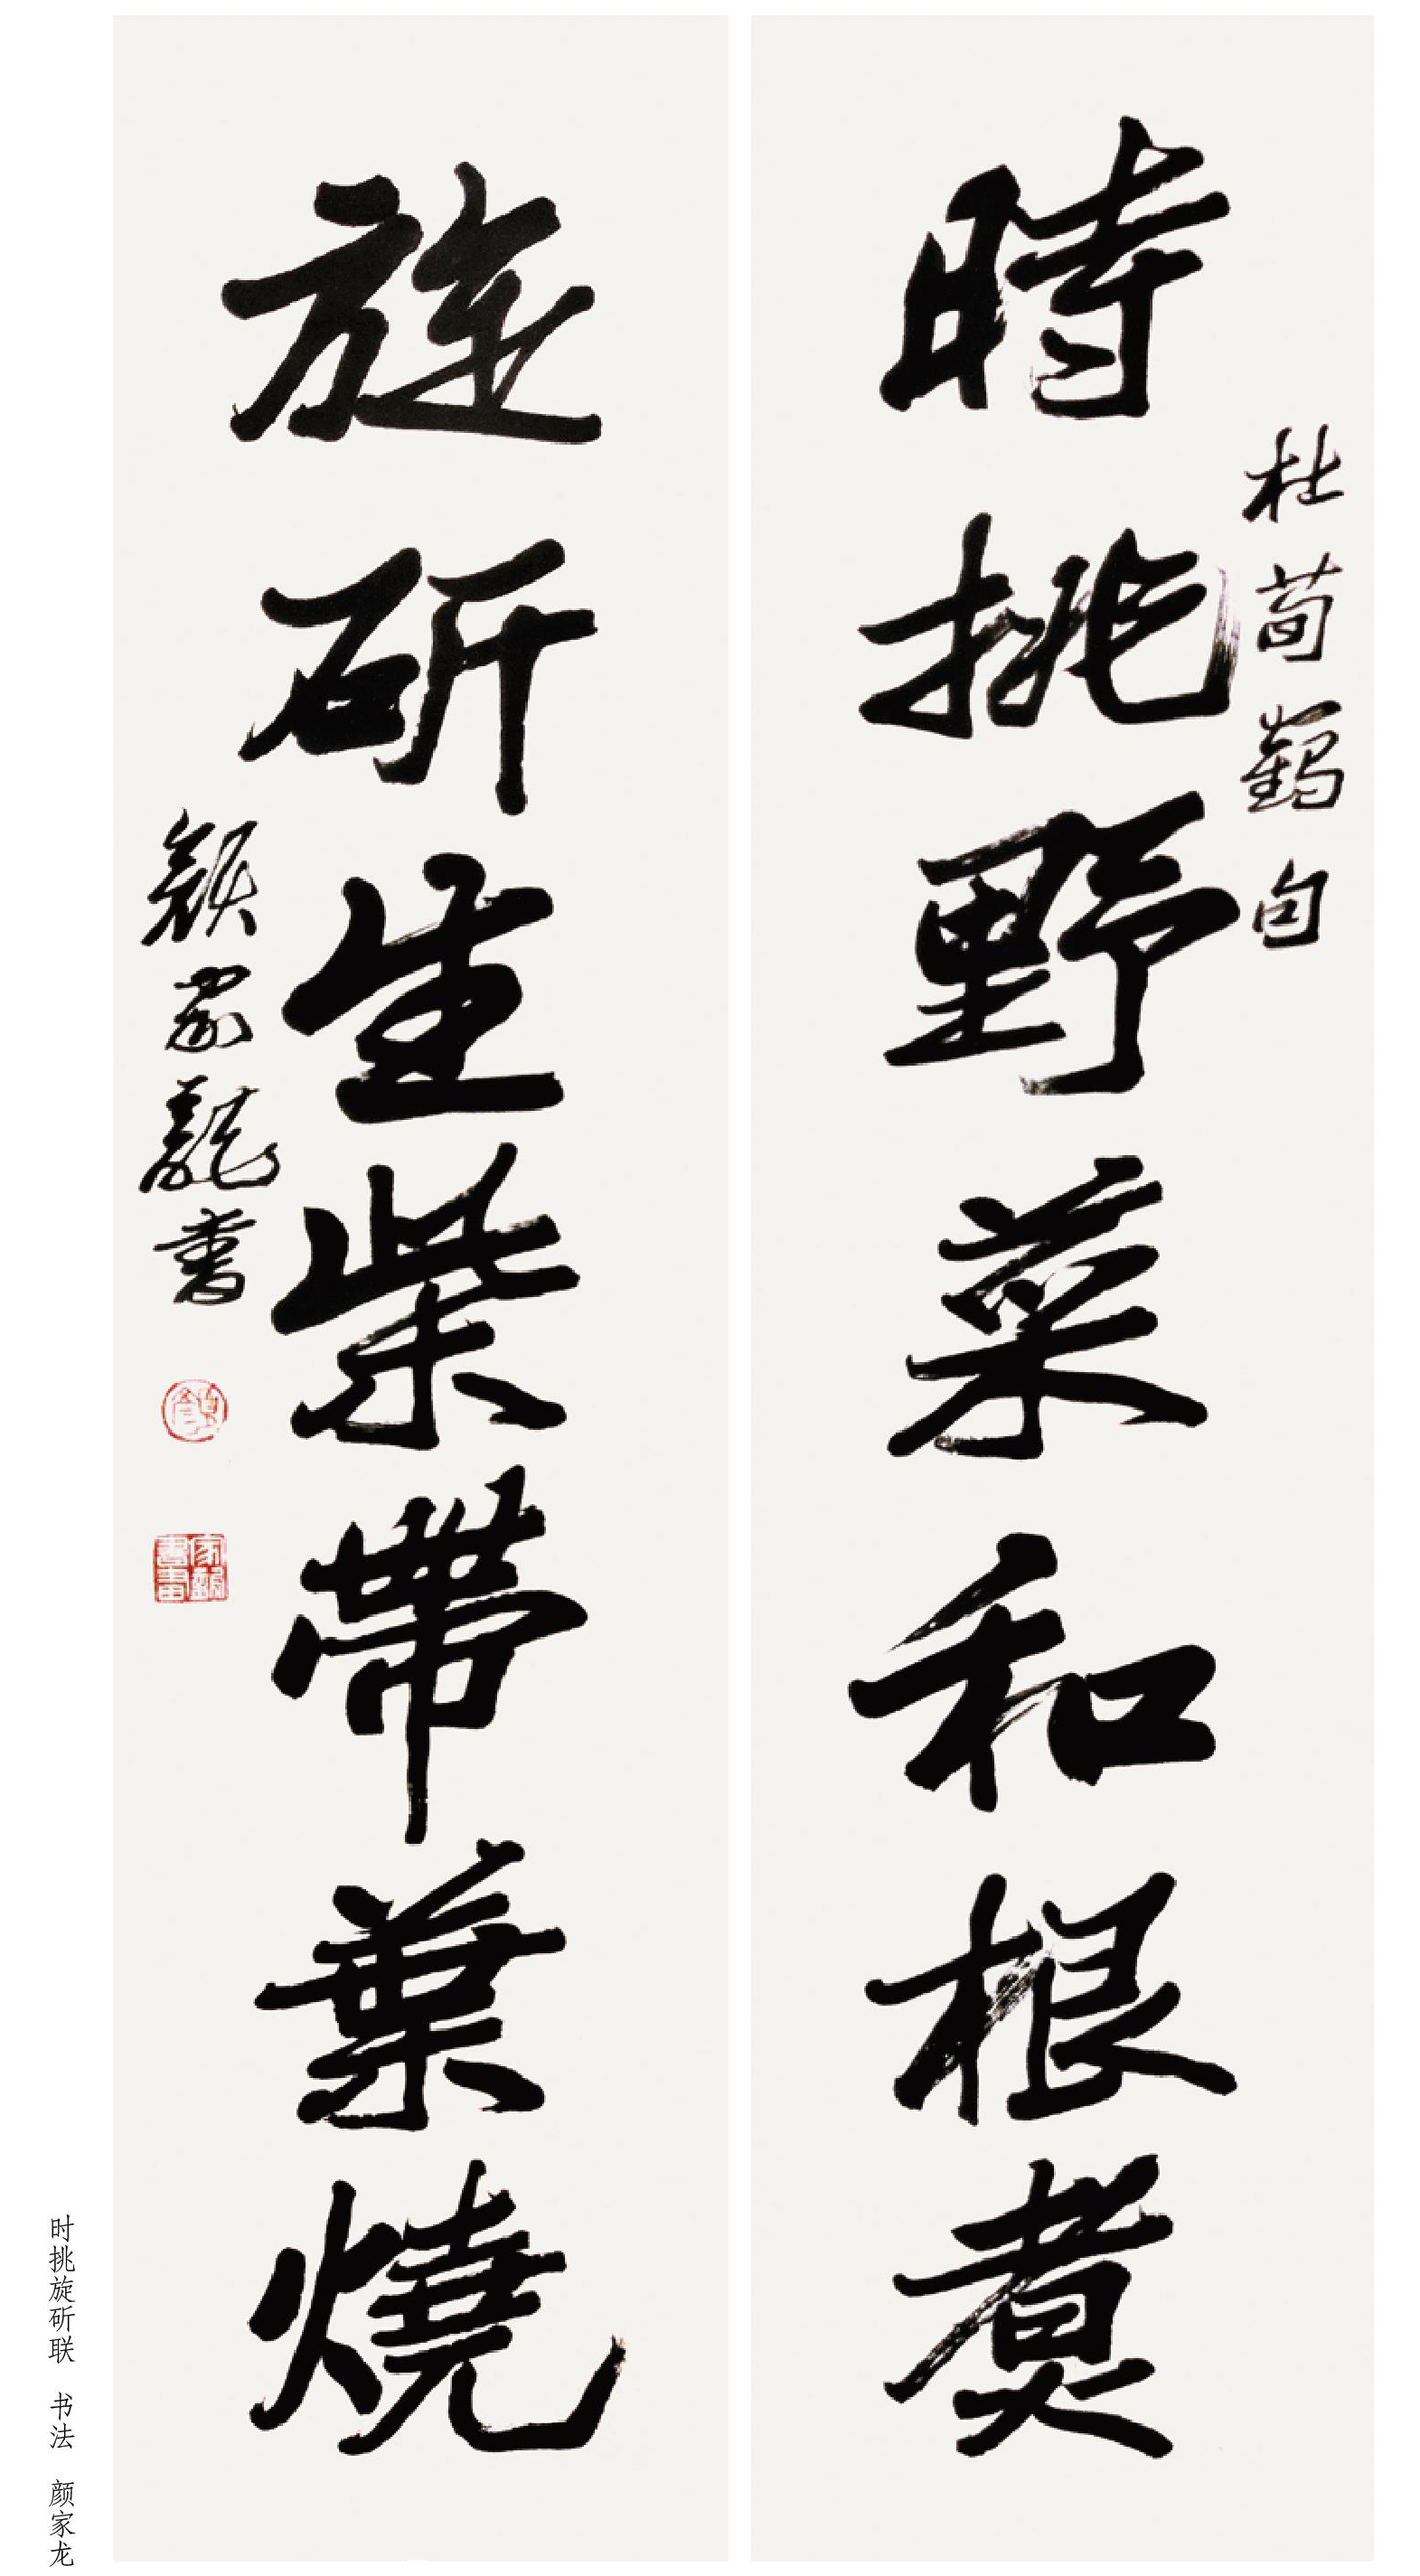 杜荀鶴句
時挑野菜和根煮
旋斫生柴帶葉燒
顏家龍書
时挑旋斫联　书法　颜家龙